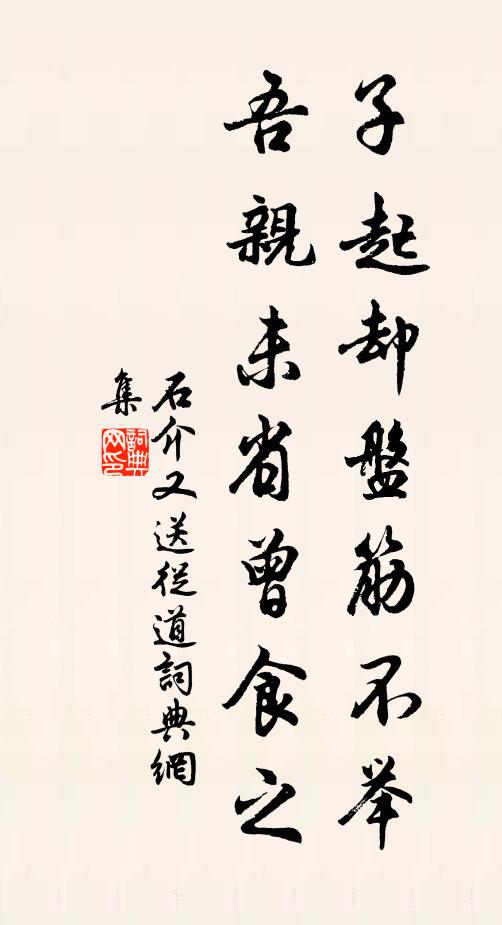 子起却盤筯不举
吾親未省曾食之
石介又送從道詞典網
集
詞典
网印